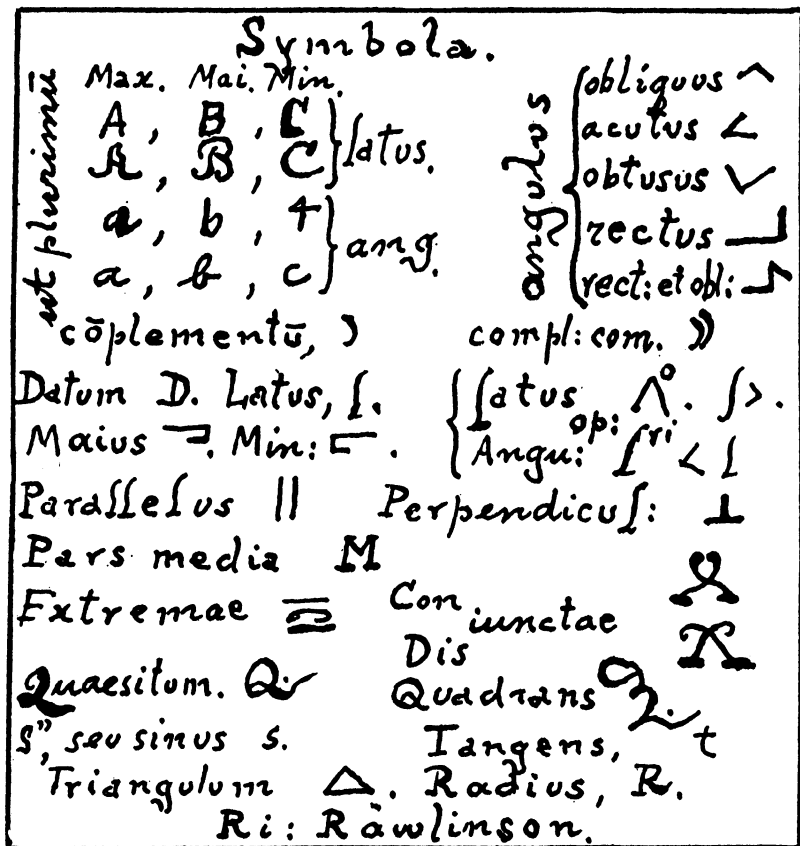 Symbola.
ut plurimū
Max. Mai. Min.
A, B, C } latus.
A, B, C
a, b, 4 } ang.
a, b, c
angulus { obliquus
acutus <
obtusus
rectus
rect: et obl:
cōplementū, ) compl: com. ))
Datum D. Latus, ſ. { ſatus op: Λ°. ʃ>.
Maius ⫎. Min: ⊏. Angu: ſri < ſ
Paraſſeſus || Perpendicuſ: ⊥
Pars media M
Extremae
Con iunctae
Dis
Quaesitum. Q. Quadrans Q.
s", seu sinus s. Tangens, t
Triangulum △. Radius, R.
Ri: Rawlinson.